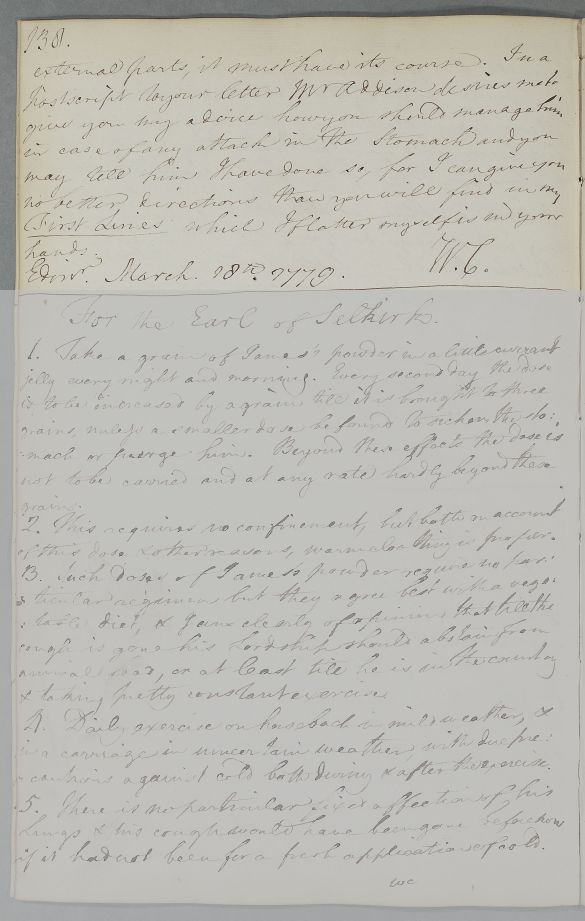 138.
external parts, it must have its course. In a
Postscript to your letter Mr Addison desires me to
give you my advice how you should manage him
in case of any attack in the Stomach and you
may tell him I have done so, for I can give you
no better directions than you will find in my
First Lines which I flatter myself is in your
hands.
W.C.
Edinr. March. 18th. 1779.
For the Earl of Selkirk.
1. Take a grain of James's powder in a little currant
jelly every night and morning. Every second day the dose
is to be increased by a grain till it is brought to three
grains, unless a smaller dose be found to sicken the sto:
:mach or purge him. Beyond these effects the dose is
not to be carried and at any rate hardly beyond these
grains.
2. This requires no confinement, but both on account
of this dose & other reasons, warm cloathing is proper.
3. Such doses of James's powder require no par:
:ticular regimen but they agree best with a vege:
:table diet, & I am clearly of opinion that till the
cough is gone his Lordship should abstain from
animal food, or at least till he is in the country
& taking pretty constant exercise.
4. Daily exercise on horseback in mild weather, &
in a carriage in uncertain weather with due pre:
:cautions against cold both during & after the exercise.
5. There is no particular fixed affection of his
Lungs & his cough would have been gone before now
if it had not been for a fresh application of cold.
WC